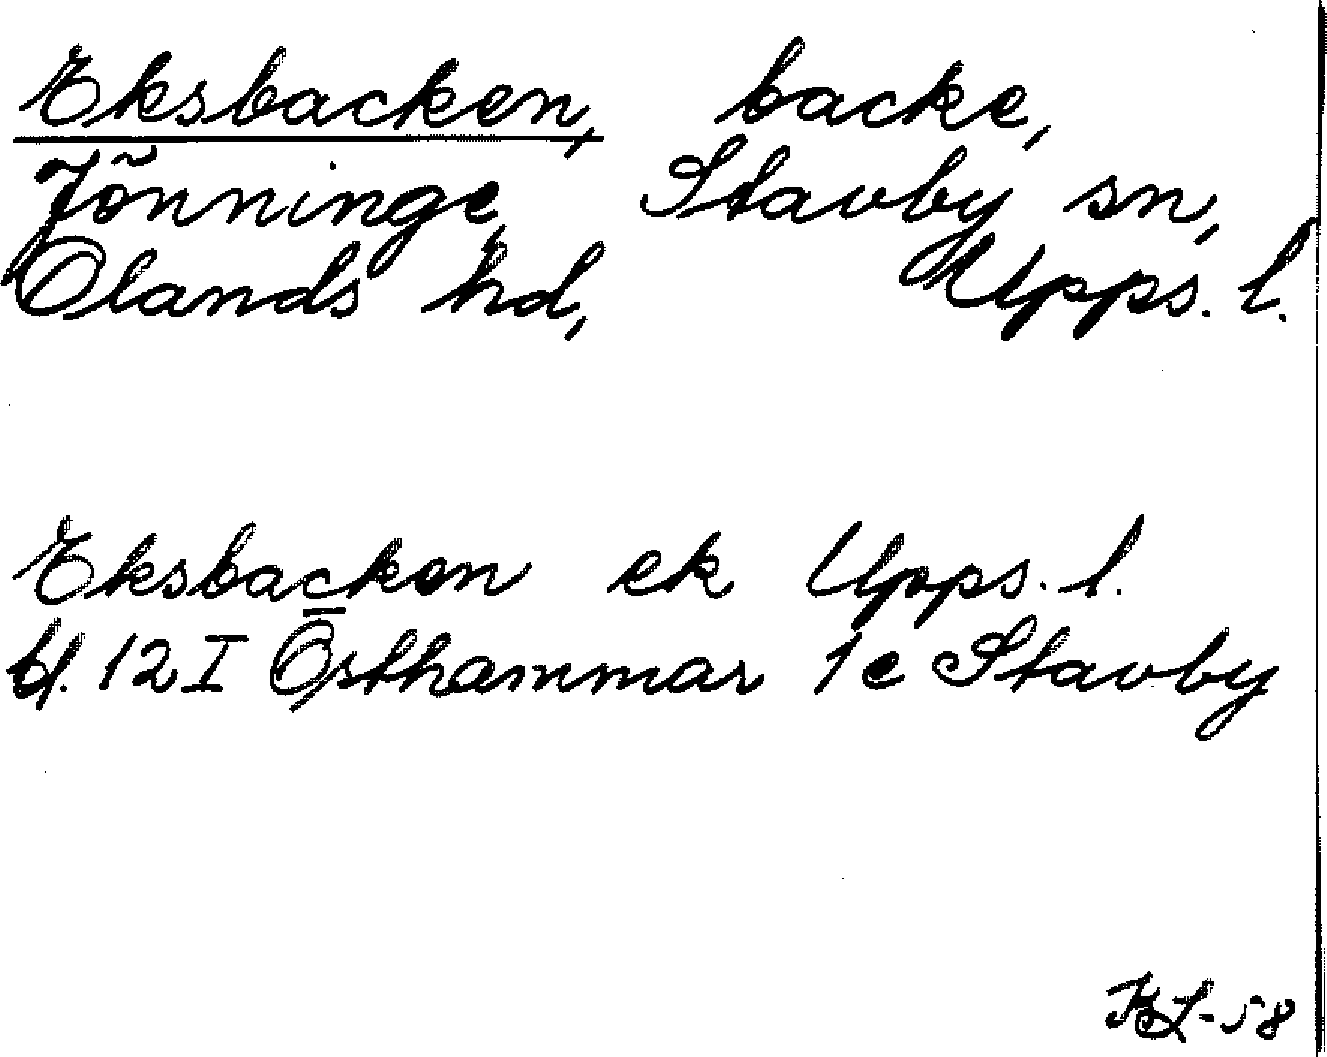 Eksbacken, backe,
Jönninge, Stavby sn,
Olands hd, Upps. l.
Eksbacken ek Upps. l.
bl. 12 I Östhammar 1e Stavby
KL-58